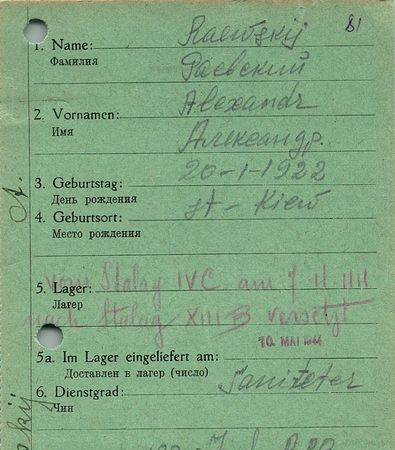 81
1. Name: Raewskij
Фамилия Раевский
2. Vornamen: Alexandr
Имя Александр.
3. Geburtstag: 20-1-1922
День рождения
4. Geburtsort: st - Kiew
Место рождения
5. Lager: vom Stalag IVC am 7.
Лагер nach Stalag XIII B versetzt
5a. Im Lager eingeliefert am: 10. MAI 1944
Доставлен в лагер (число)
6. Dienstgrad: Saniteter
Чин